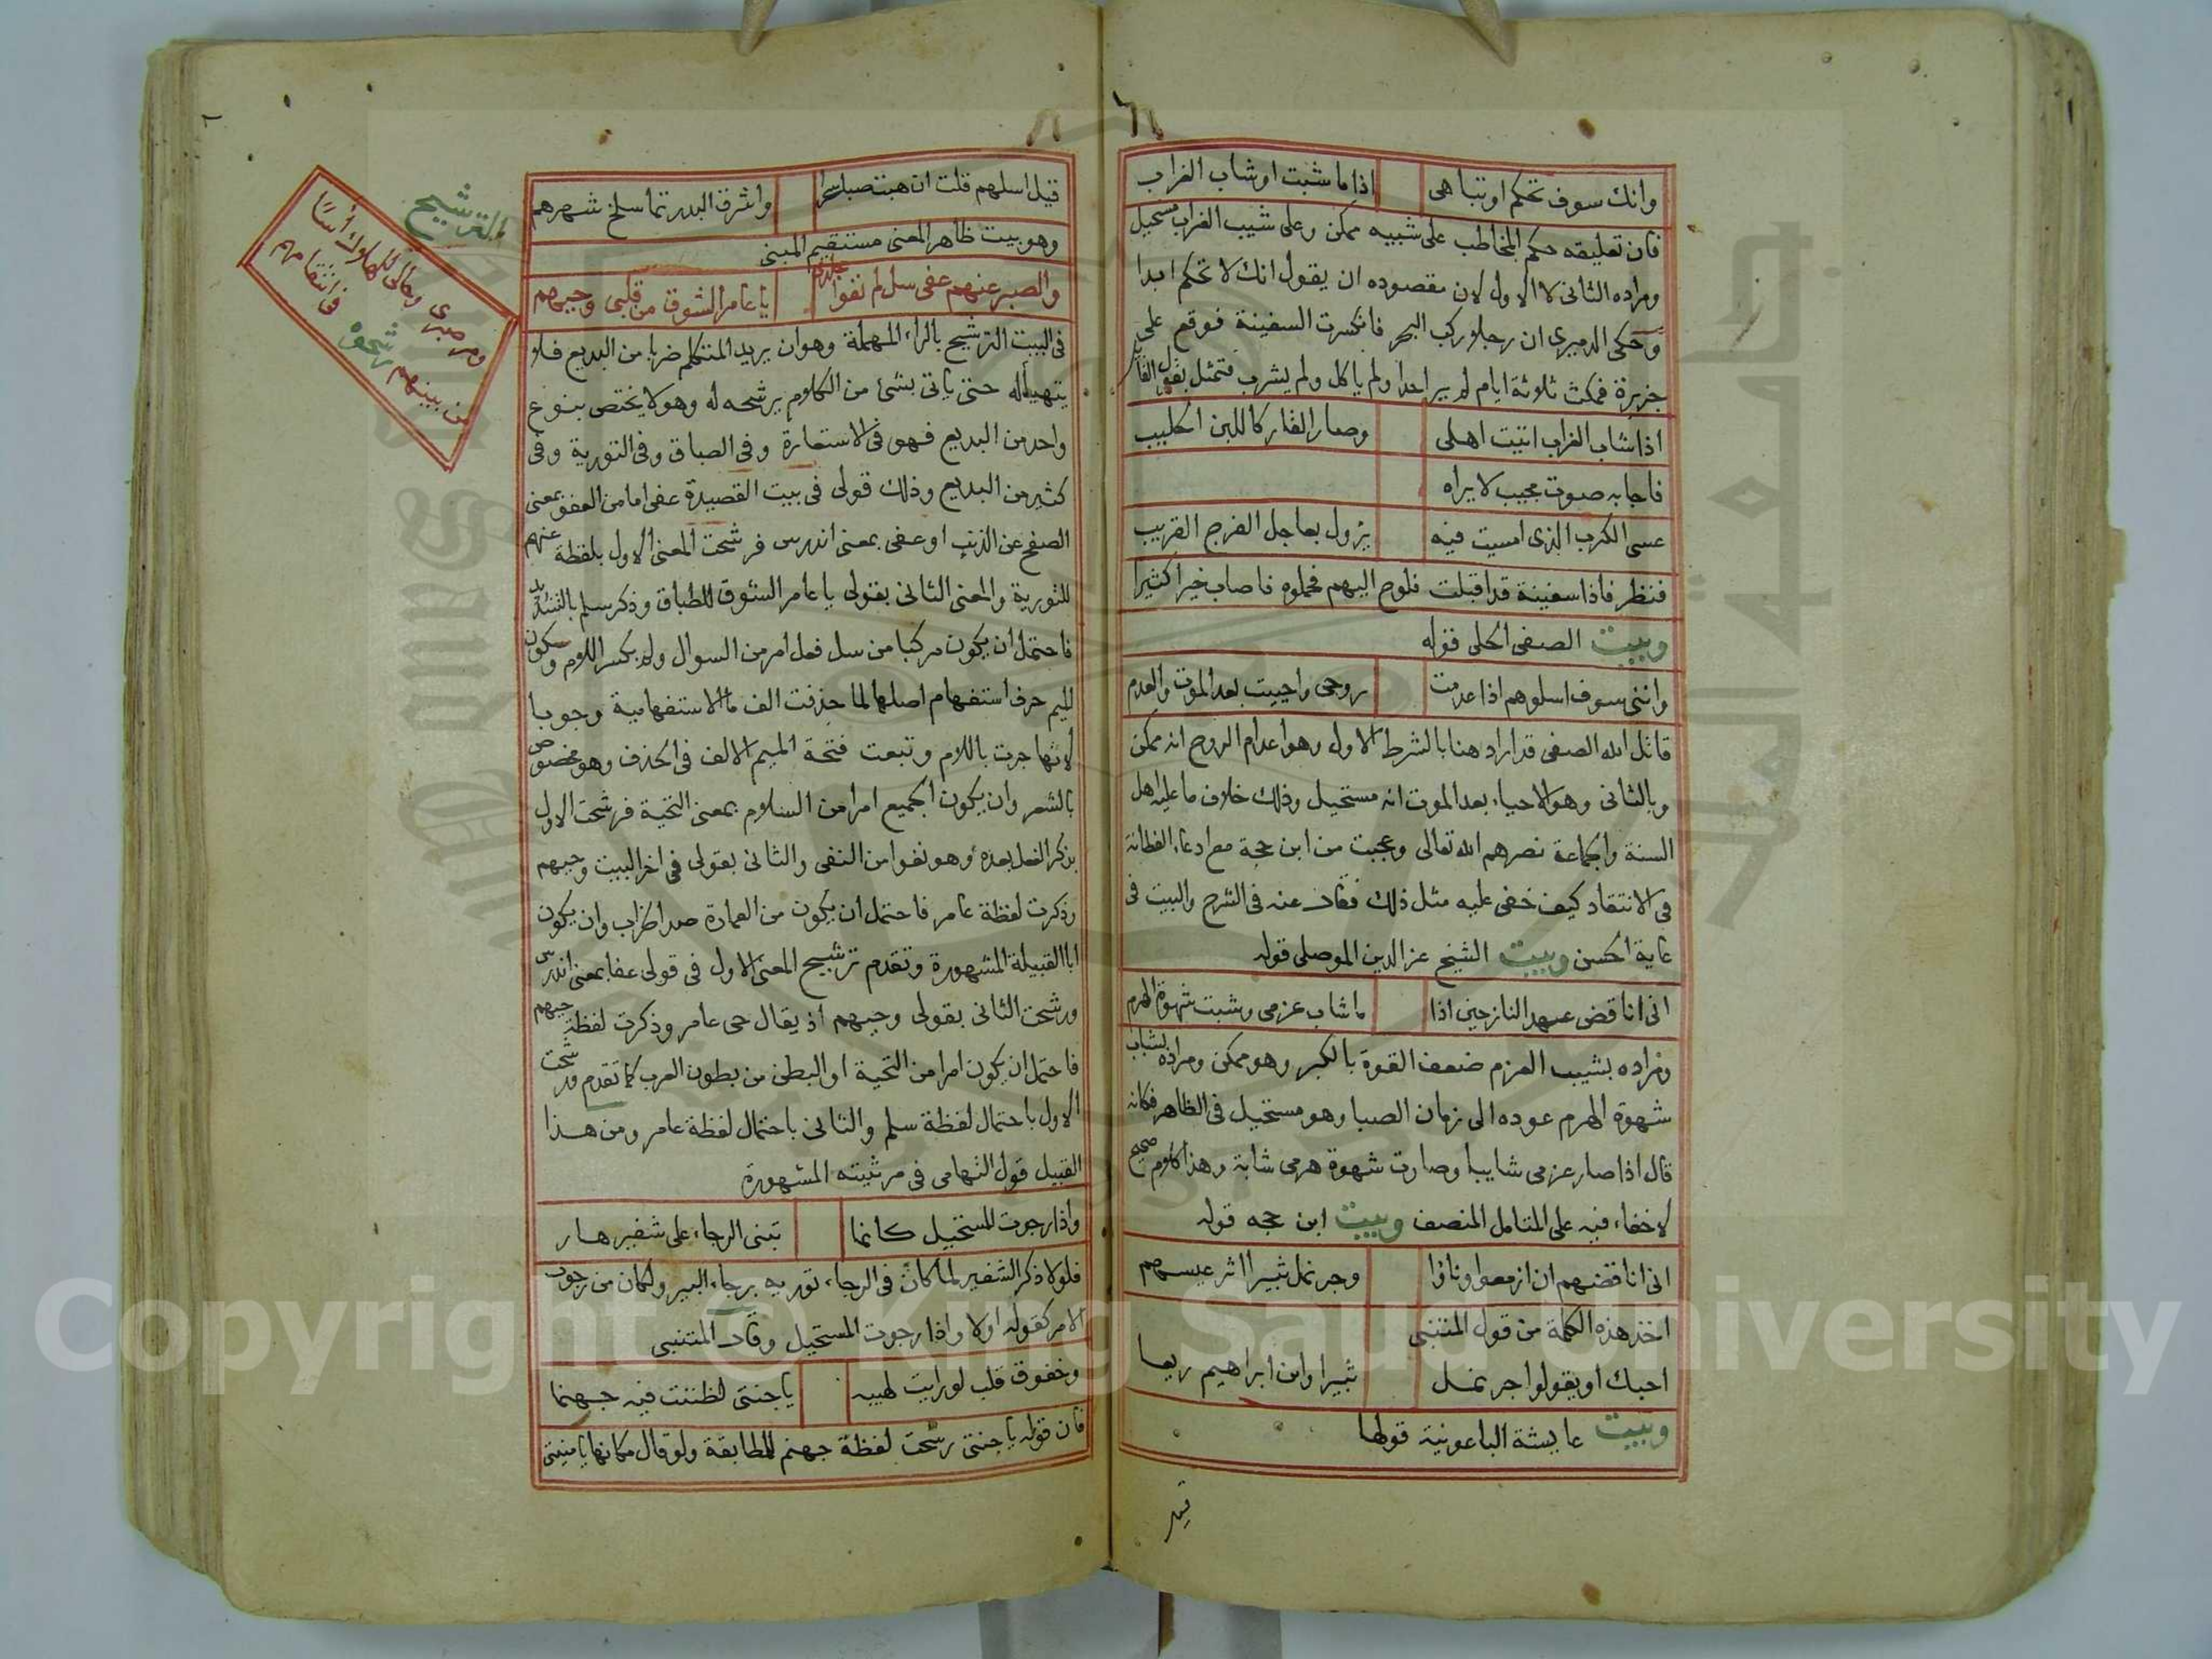 وانك سوف تحكم او تباهى اذا ما شبت او شاب الغراب
فان تعليقه حكم المخاطب على شيبه ممكن وعلى شيب الغراب مستحيل
ومراده الثانى لا الاول لان مقصوده ان يقول انك لا تحكم ابدا
وحكى الدميرى ان رجلا ركب البحر فانكسرت السفينة فوقع على
جزيرة فمكث ثلاثة ايام لم ير احدا ولم ياكل ولم يشرب فتمثل بقول القائل
اذا شاب الغراب اتيت اهلى وصار القار كاللبن الحليب
فاجابه صوت مجيب لا يراه
عسى الكرب الذى امسيت فيه يزول بعاجل الفرج القريب
فنظر فاذا سفينة قد اقبلت فلوح اليهم فحملوه فاصاب خيرا كثيرا
وبيت الصفى الحلى قوله
واننى سوف اسلوهم اذا عدمت روحى واحييت بعد الموت والعدم
قاتل الله الصفى قد اراد هنا بالشرط الاول وهو اعدام الروح انه ممكن
وبالثانى وهو الاحياء بعد الموت انه مستحيل وذلك خلاف ما عليه اهل
السنة والجماعة نصرهم الله تعالى وعجبت من ابن حجة مع ادعاء الفطانة
فى الانتقاد كيف خفى عليه مثل ذلك فقال عنه فى الشرح والبيت فى
غاية الحسن وبيت الشيخ عز الدين الموصلى قوله
انى اناقض عهد النازحين اذا ما شاب عزمى وشبت شهوة الهرم
ومراده بشيب العزم ضعف القوة بالكبر وهو ممكن ومراده بشباب
شهوة الهرم عوده الى زمان الصبا وهو مستحيل فى الظاهر فكانه
قال اذا صار عزمى شايبا وصارت شهوة هرمى شابة وهذا كلام صحيح
لا خفاء فيه على المتامل المنصف وبيت ابن حجه قوله
انى اناقضهم ان ازمعوا وناوا وجر نمل ثبيرا اثر عيسهم
اخذ هذه الكلمة من قول المتنبى
احبك او يقولوا جر نمل ثبيرا وابن ابراهيم ريعا
وبيت عايشة الباعونية قولها
قيل
قيل اسلهم قلت ان هبت صبا سحرا واشرق البدر تما سلخ شهرهم
وهو بيت ظاهر المعنى مستقيم المبنى
والصبر عنهم عفى سل لم نفوا جلدى يا عامر الشوق من قلبى وحيهم
فى البيت الترشيح بالراء المهملة وهو ان يريد المتكلم ضربا من البديع فلا
يتهيأ له حتى ياتى بشئ من الكلام يرشحه له وهو لا يختص بنوع
واحد من البديع فهو فى الاستعارة وفى الطباق وفى التورية وفى
كثير من البديع وذلك قولى فى بيت القصيدة عفى اما من العفو بمعنى
الصفح عن الذنب او عفى بمعنى اندرس فرشحت المعنى الاول بلفظة عنهم
للتورية والمعنى الثانى بقولى يا عامر الشوق للطباق وذكر سلم بالتشديد
فاحتمل ان يكون مركبا من سل فعل امر من السوال ولم بكسر اللام وسكون
الميم حرف استفهام اصلها لما حذفت الف ما الاستفهامية وجوبا
لانها جرت باللام وتبعت فتحة الميم الالف فى الحذف وهو مخصوص
بالشعر وان يكون الجميع امرا من السلام بمعنى التحية فرشحت الاول
بذكر الفعل بعده وهو نفوا من النفى والثانى بقولى فى اخر البيت وحيهم
وذكرت لفظة عامر فاحتمل ان يكون من العمارة ضد الخراب وان يكون
ابا القبيلة المشهورة وتقدم ترشيح المعنى الاول فى قولى عفا بمعنى اندرس
ورشحت الثانى بقولى وحيهم اذ يقال حى عامر وذكرت لفظة حيهم
فاحتمل ان يكون امرا من التحية او البطن من بطون العرب كما تقدم ورشحت
الاول باحتمال لفظة سلم والثانى باحتمال لفظة عامر ومن هذا
القبيل قول التهامى فى مرثيته المشهورة
واذا رجوت المستحيل كانما تبنى الرجاء على شفير هار
فلولا ذكر الشفير لما كان فى الرجاء تورية برجاء البير ولكان من رجوت
الامر كقوله اولا واذا رجوت المستحيل وقال المتنبى
وخفوق قلب لو رايت لهيبه يا جنتى لظننت فيه جهنما
فان قوله يا جنتى رشحت لفظة جهنم للمطابقة ولو قال مكانها يا منيتى
الترشيح
ومر صبرى
من بينهم رشحوه فى انتقامهم